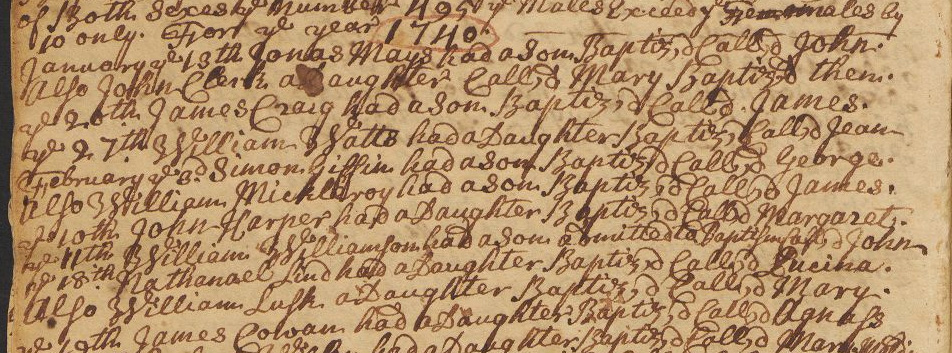 of Both Sexes ye Number 495 ye Males Exceed ye Females by
10 only. For ye year 1740.
January ye 13th Jonas Mays had a Son Baptiz,d Call,d John.
Also John Clerk a Daughter Call,d Mary Baptiz,d then.
ye 20th James Craig had a Son Baptiz,d Call,d James.
ye 27th William Watts had a Daughter Baptiz,d Call,d Jean
February ye 3d Simon Giffin had a Son Baptiz,d Call,d George.
Also William Mickleroy had a Son Baptiz,d Call,d James.
ye 10th John Harper had a Daughter Baptiz,d Call,d Margaret.
ye 11th William Williamson had a Son admitted to Baptism Call,d John
ye 18th Nathanael Lind had a Daughter Baptiz,d Call,d Lucina.
Also William Lusk a Daughter Baptiz,d Call,d Mary.
ye 19th James Cowan had a Daughter Baptiz,d Call,d Agnass
had a Daughter Baptiz,d Call,d